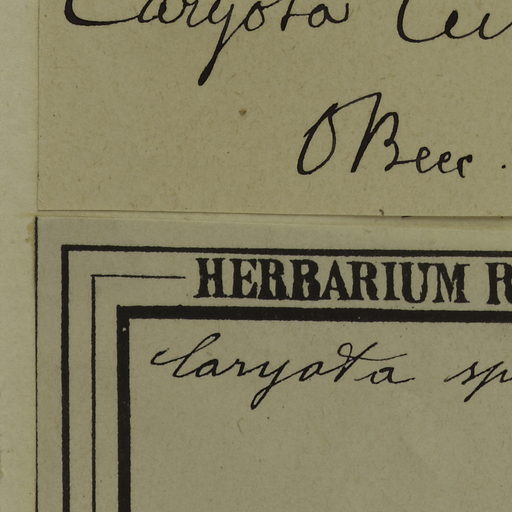 Caryota
OBecc.
HERBARIUM
Caryota sp